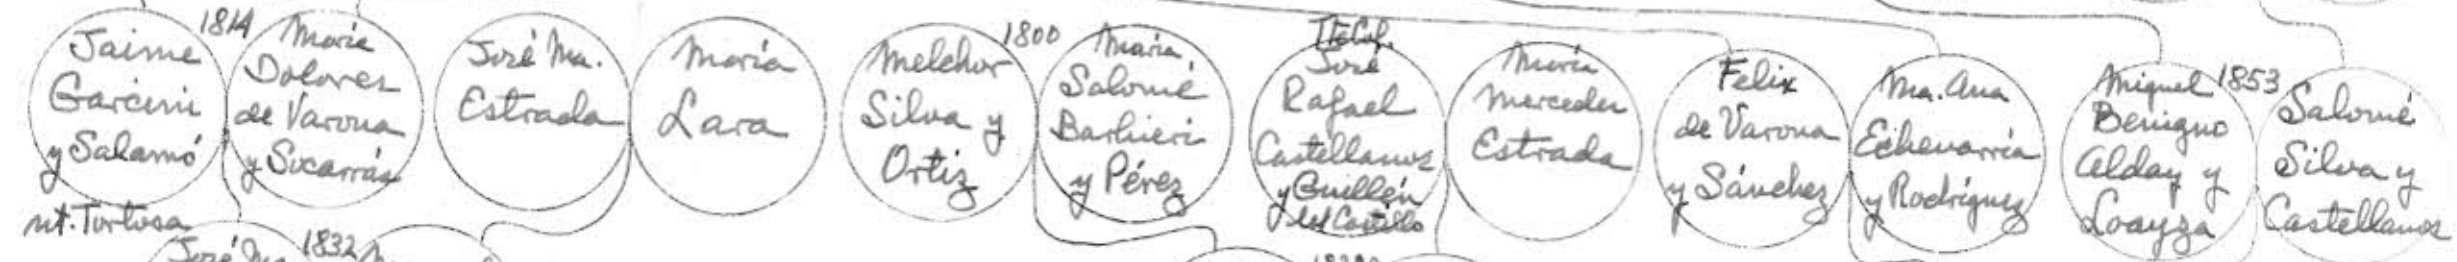 Jaime
Garcini
y Salamó
nt. Tortosa
1814
María
Dolores
de Varona
y Socarrás
José Ma.
Estrada
María
Lara
Melchor
Silva y
Ortiz
1800
María
Salomé
Barbieri
y Pérez
Tte Cnl.
José
Rafael
Castellanos
y Guillén
del Castillo
María
Mercedes
Estrada
Felix
de Varona
y Sánchez
Ma. Ana
Echevarría
y Rodríguez
Miguel
Benigno
Alday y
Loayza
1853
Salomé
Silva y
Castellanos
José Ma
1832